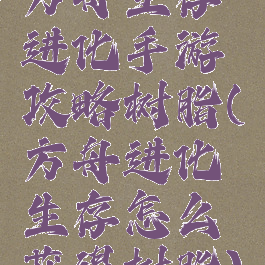 方舟生存
进化手游
攻略树脂(
方舟进化
生存怎么
获得树脂)